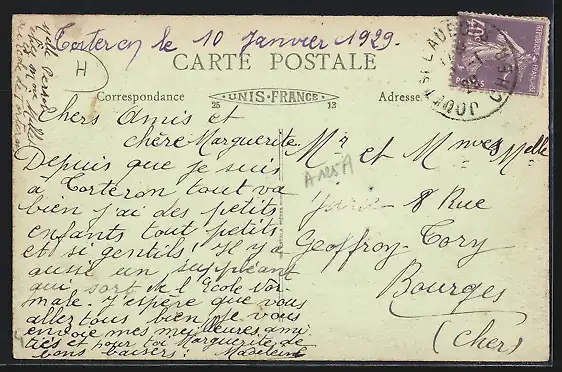 Torteron le 10 Janvier 1929.
H
CARTE POSTALE
Correspondance
UNIS-FRANCE
25
13
Adresse
40c
REPUBLIQUE FRANÇAISE
CHER
Chers Amis et
chère Marguerite.
Depuis que je suis
a Torteron tout va
bien j'ai des petits
enfants tout petits
et si gentils. Il y a
aussi un suppléant
qui sort de l'Ecole Nor
male. J'espère que vous
allez tous bien je vous
envoie mes meilleures ami
tiés et pour toi Marguerite de
bons baisers: Madeleine
Mr et Mmes Melle
8 Rue
Geoffroy-Tory
Bourges
(Cher)